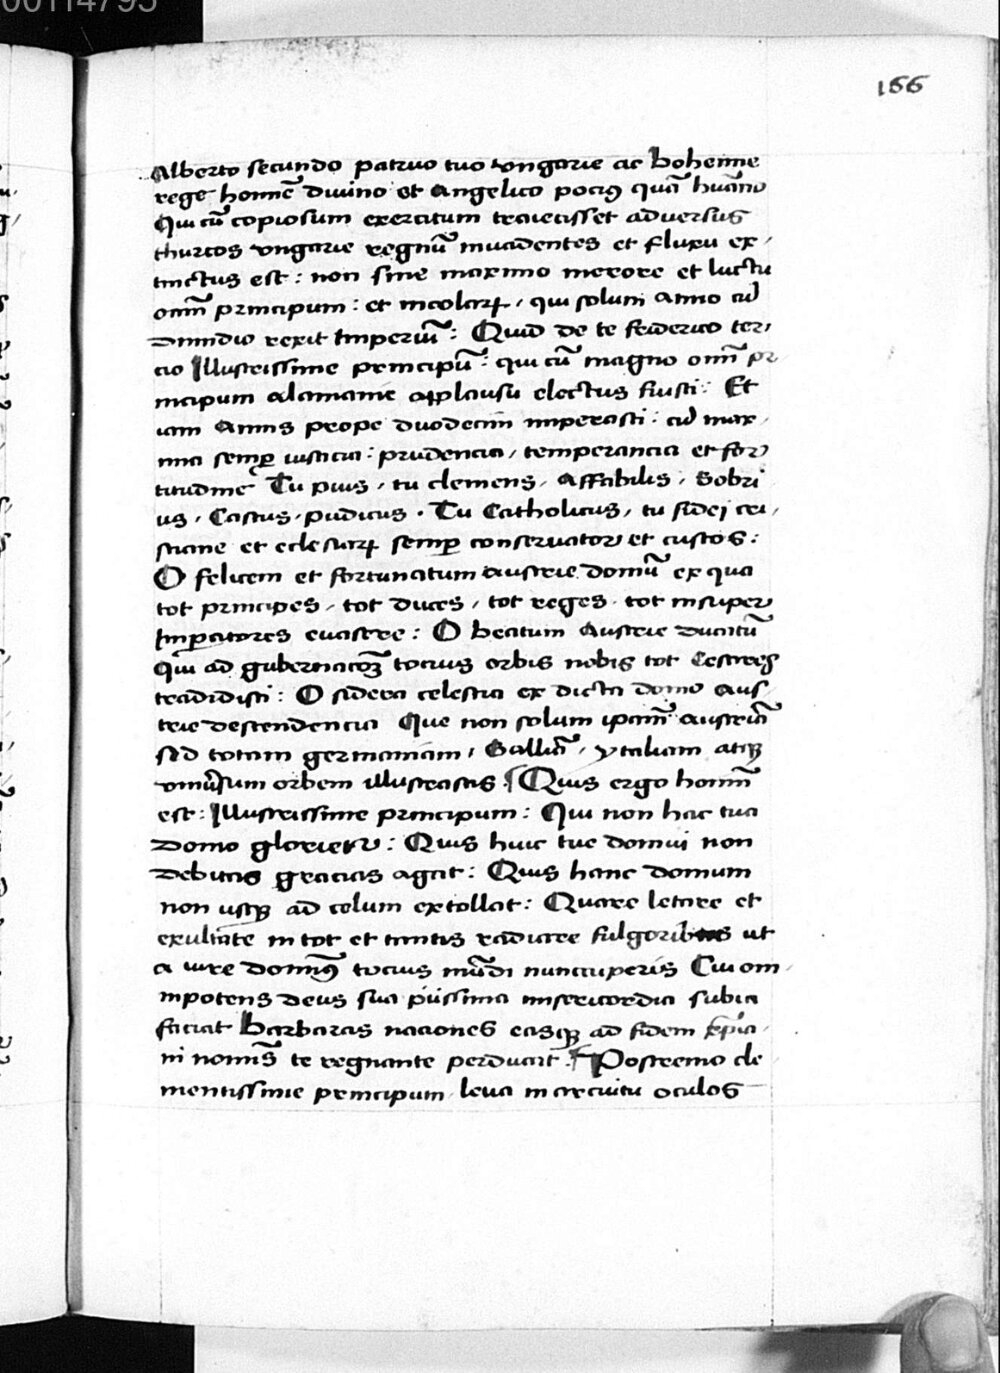 00114795
166
Alberto secundo patruo tuo vngarie ac bohemie
rege homīe divino et Angelico pociꝰ quā hūano
Qui cū copiosum exercitum traiecisset adversus
thurcos vngarie regnū invadentes et fluxu ex,
tinctus est: non sine maximo merore et luctu
omī principum: et incolarꝝ, qui solum Anno cū
dimidio rexit Imperiū: Quid de te federico ter,
cio Illustrissime principū: qui cū magno omī pr
incipum alamanie applausu electus fuisti: Et
iam Annis prope duodecim imperasti: cū max,
ima semꝑ iusticia: prudencia, temperancia et for
titudine Tu pius, tu clemens, Affabilis, Sobri
us, Castus, pudicus. Tu Catholicus, tu fidei cri,
stiane et eclesiarꝝ semꝑ conservator et custos:
O felicem et fortunatum austrie domū ex qua
tot principes, tot duces, tot reges, tot insuper
Imꝑatores evasere: O beatum Austrie ducatū
Qui ad gubernacoꝫ tocius orbis nobis tot Cesares
tradidisti: O sidera celestia ex dicta domo Aus,
trie descendencia Que non solum ipam̄ austriā
sed totam germaniam, Galliā, ytaliam atqꝫ
vniūsum orbem illustrastis. Quis ergo homī
est: Illustrissime principum: Qui non hac tua
domo glorietur: Quis huic tue domui non
debitas gracias agat: Quis hanc domum
non usqꝫ ad celum extollat: Quare letare et
exultate in tot et tantis radiare fulgoribus ut
a iure domīꝰ tocius mūdi nuncuperis Cui om,
nipotens deus sua piissima misericordia subia
ficiat Barbaras naciones easqꝫ ad fidem xp̄ia,
ni nomīs te regnante perducat. Postremo cle
mentissime principum leva in circuitu oculos